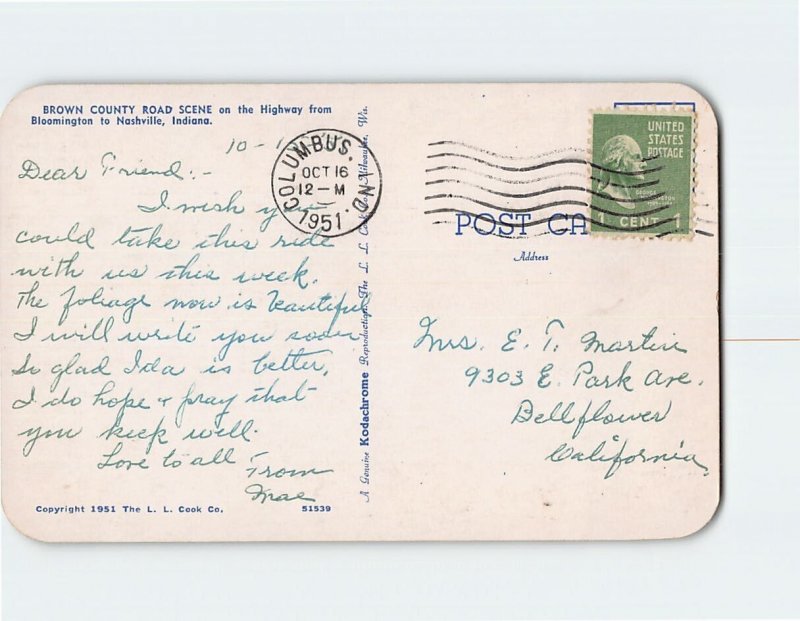 BROWN COUNTY ROAD SCENE on the Highway from
Bloomington to Nashville, Indiana.
10-1
Dear Friend:-
I wish you
could take this ride
with us this week.
The foliage now is beautiful
I will write you soon
So glad Ida is better,
I do hope + pray that
you keep well.
Love to all From
Mae
Copyright 1951 The L. L. Cook Co. 51539
A Genuine Kodachrome Reproduction, The L. L. Cook Co., Milwaukee, Wis.
COLUMBUS. IND.
OCT 16
12-M
1951
UNITED
STATES
POSTAGE
GEORGE
WASHINGTON
1 CENT 1
POST CA
Address
Mrs. E. T. Martin
9303 E. Park Ave.
Bellflower
California